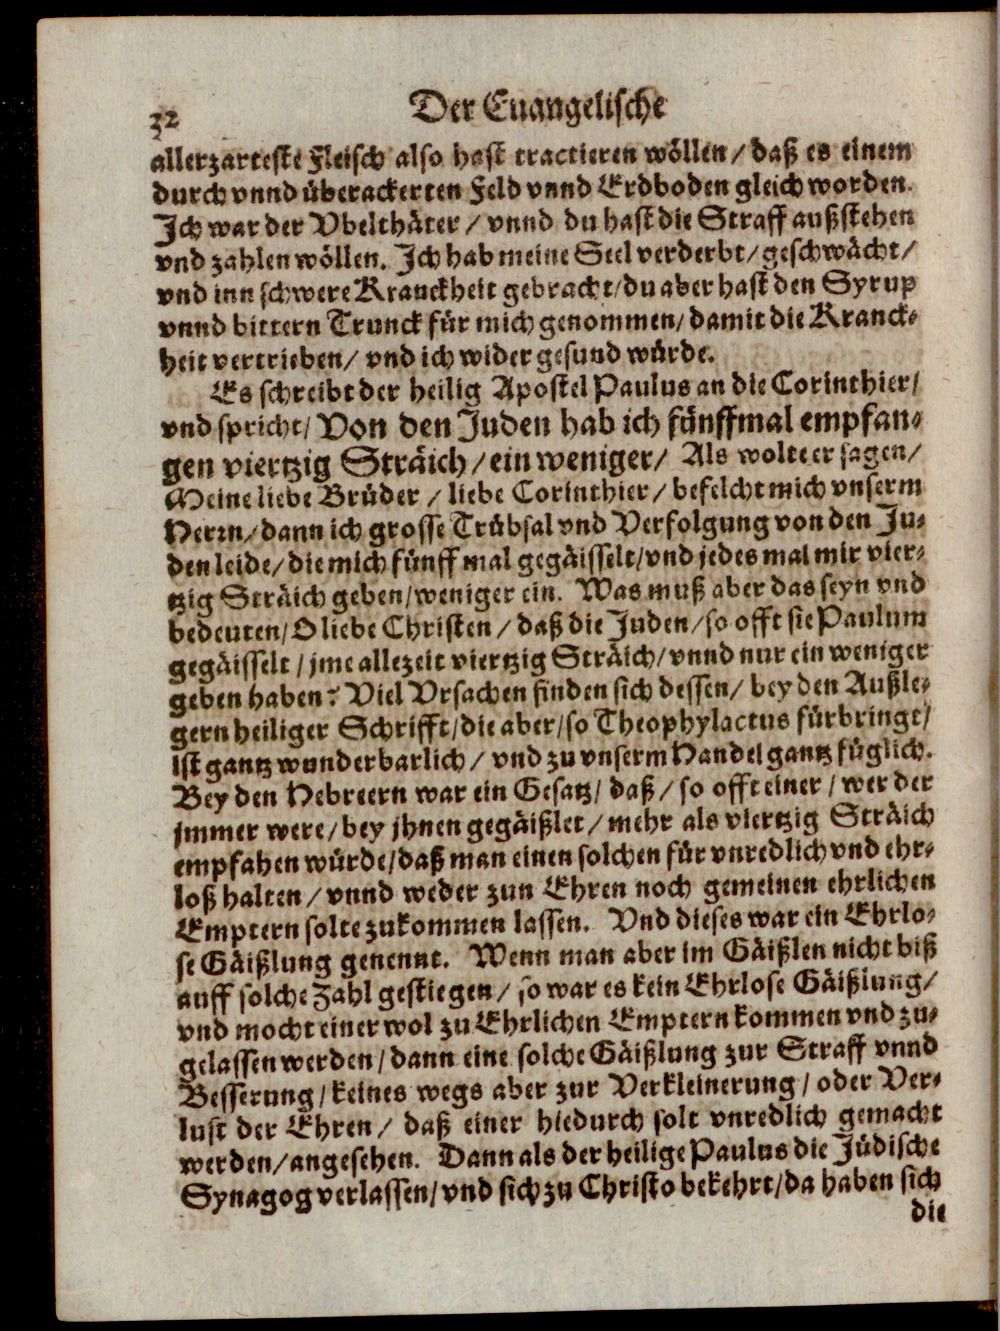 32
Der Euangelische
allerzarteste Fleisch also hast tractieren wöllen / daß es einem
durch vnnd überackerten Feld vnnd Erdboden gleich worden.
Ich war der Vbelthäter / vnnd du hast die Straff außstehen
vnd zahlen wöllen. Ich hab meine Seel verderbt / geschwächt /
vnd inn schwere Kranckheit gebracht / du aber hast den Syrup
vnnd bittern Trunck für mich genommen / damit die Kranck-
heit vertrieben / vnd ich wider gesund würde.
Es schreibt der heilig Apostel Paulus an die Corinthier /
vnd spricht / Von den Juden hab ich fünffmal empfan-
gen viertzig Sträich / ein weniger / Als wolte er sagen /
Meine liebe Brüder / liebe Corinthier / befelcht mich vnserm
Herrn / dann ich grosse Trübsal vnd Verfolgung von den Ju-
den leide / die mich fünff mal gegäisselt / vnd jedes mal mir vier-
tzig Sträich geben / weniger ein. Was muß aber das seyn vnd
bedeuten / O liebe Christen / daß die Juden / so offt sie Paulum
gegäisselt / jme allezeit viertzig Sträich / vnnd nur ein weniger
geben haben? Viel Vrsachen finden sich dessen / bey den Außle-
gern heiliger Schrifft / die aber / so Theophylactus fürbringt /
ist gantz wunderbarlich / vnd zu vnserm Handel gantz füglich.
Bey den Hebreern war ein Gesatz / daß / so offt einer / wer der
jmmer were / bey jhnen gegäißlet / mehr als viertzig Sträich
empfahen würde / daß man einen solchen für vnredlich vnd ehr-
loß halten / vnnd weder zun Ehren noch gemeinen ehrlichen
Emptern solte zukommen lassen. Vnd dieses war ein Ehrlo-
se Gäißlung genennt. Wenn man aber im Gäißlen nicht biß
auff solche Zahl gestiegen / so war es kein Ehrlose Gäißlung /
vnd mocht einer wol zu Ehrlichen Emptern kommen vnd zu-
gelassen werden / dann eine solche Gäißlung zur Straff vnnd
Besserung / keines wegs aber zur Verkleinerung / oder Ver-
lust der Ehren / daß einer hiedurch solt vnredlich gemacht
werden / angesehen. Dann als der heilige Paulus die Jüdische
Synagog verlassen / vnd sich zu Christo bekehrt / da haben sich
die